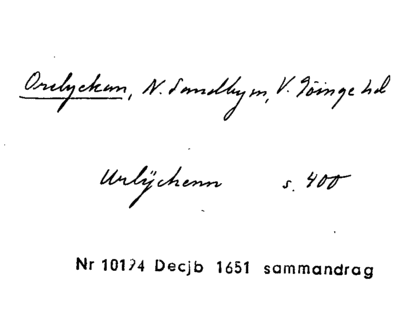 Orelyckan, N. Sandby sn, V. Göinge hd
Urlÿckenn s. 400
Nr 10194 Decjb 1651 sammandrag